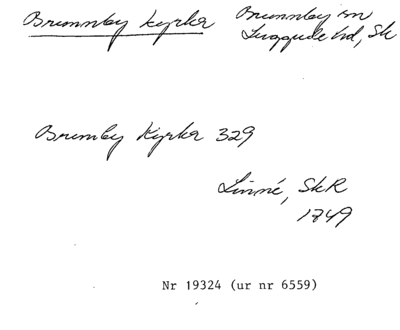 Brunnby kyrka Brunnby sn
Luggude hd, Sk
Brunby Kyrka 329
Linné, SkR
1749
Nr 19324 (ur nr 6559)